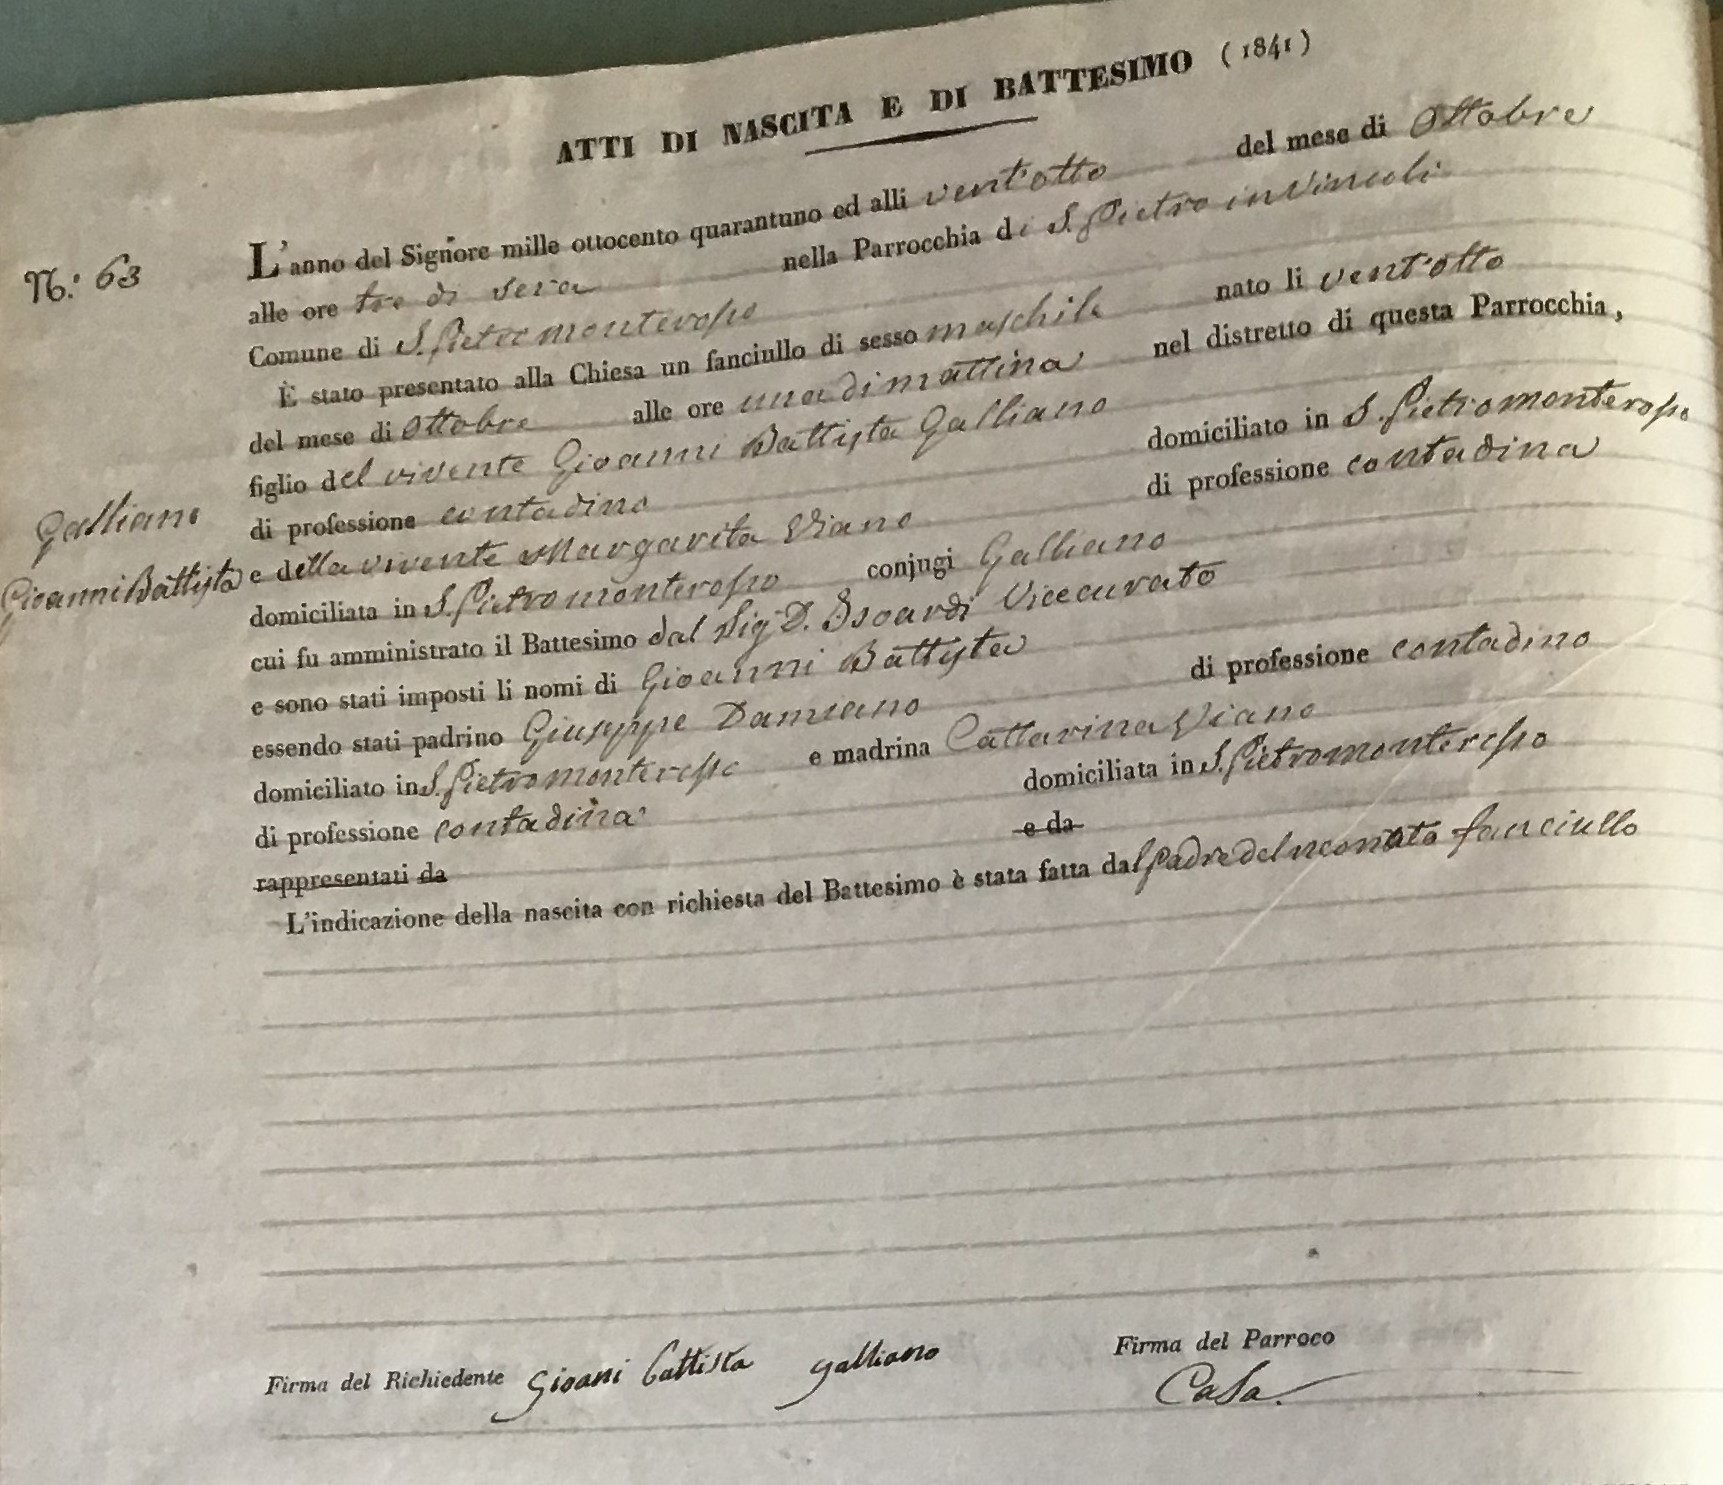 ATTI DI NASCITA E DI BATTESIMO (1841)
N.: 63
L'anno del Signore mille ottocento quarantuno ed alli vent'otto del mese di Ottobre
alle ore tre di sera nella Parrocchia di S. Pietro in Vincoli
Comune di S. Pietro monterosso
È stato presentato alla Chiesa un fanciullo di sesso maschile nato li vent'otto
del mese di Ottobre alle ore una di mattina nel distretto di questa Parrocchia,
figlio del vivente Gioanni Battista Galliano domiciliato in S. Pietro monterosso
di professione contadino di professione contadina
Galliano
Gioanni Battista
e della vivente Margarita Viano
domiciliata in S. Pietro monterosso conjugi Galliano
cui fu amministrato il Battesimo dal Sig D. Isoardi Vicecurato
e sono stati imposti li nomi di Gioanni Battista
essendo stati padrino Giuseppe Damiano di professione contadino
domiciliato in S. Pietro monterosso e madrina Cattarina Viano
di professione contadina domiciliata in S. Pietro monterosso
rappresentati da e da
L'indicazione della nascita con richiesta del Battesimo è stata fatta dal padre del neonato fanciullo
Firma del Richiedente Gioani Battista Galliano
Firma del Parroco
Casa.